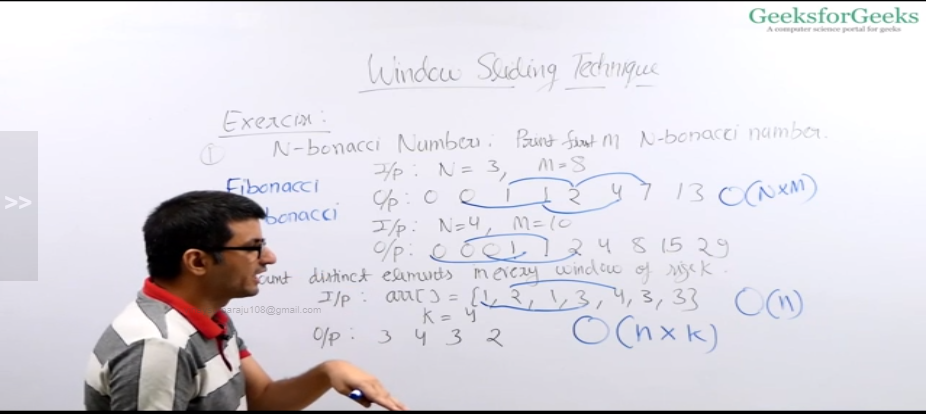 GeeksforGeeks
A computer science portal for geeks
>>
Window Sliding Technique
Exercise:
① N-bonacci Number: Print first M N-bonacci number.
I/p: N = 3, M=8
Fibonacci
O/p: 0 0 1 1 2 4 7 13 O(N×M)
bonacci
I/p: N=4, M=10
O/p: 0 0 0 1 1 2 4 8 15 29
unt distinct elements in every window of size k.
I/p: arr[] = {1, 2, 1, 3, 4, 3, 3} O(n)
araju108@gmail.com
k = 4
O/p: 3 4 3 2 O(n×k)